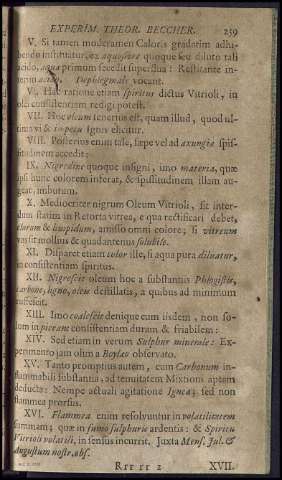 EXPERIM. THEOR. BECCHER. 259
V. Si tamen moderamen Caloris gradatim adhi-
bendo instituitur, ex aquosiore quoque seu diluto tali
acido, aqua primum secedit superflua: Restitante in-
terim acido. Dephlegmare vocant.
VI. Hac ratione etiam spiritus dictus Vitrioli, in
olei consistentiam redigi potest.
VII. Hoc oleum tenerius est, quam illud, quod ul-
timâ vi & impetu Ignis elicitur.
VIII. Posterius enim istic, sæpe vel ad axungiæ spis-
situdinem accedit:
IX. Nigredine quoque insigni, imo materia, quæ
ipsi hunc colorem inferat, & spissitudinem illam au-
geat, imbutum.
X. Mediocriter nigrum Oleum Vitrioli, fit inter-
dum statim in Retorta vitrea, e qua rectificari debet,
clarum & limpidum, amisso omni colore; si vitreum
vas sit mollius & quadantenus solubile.
XI. Disparet etiam color ille, si aqua pura diluatur,
in consistentiam spiritus.
XII. Nigrescit oleum hoc a substantiis Phlogistis,
carbone, ligno, oleis destillatis, a quibus ad minimum
rufescit.
XIII. Imo coalescit denique cum iisdem, non so-
lum in piceam consistentiam duram & friabilem:
XIV. Sed etiam in verum Sulphur minerale: Ex-
perimento jam olim a Boyleo observato.
XV. Tanto promptius autem, cum Carbonum in-
flammabili substantia, ad tenuitatem Mixtioni aptam
deducta: Nempe actuali agitatione Ignea; sed non
flammea prorsus.
XVI. Flammea enim resolvuntur in volatiliterem
fumum; quæ in fumo sulphuris ardentis: & Spiritu
Vitrioli volatili, in sensus incurrit. Juxta Mens. Jul. &
Augustum nostr. obs.
Rrr rr 2 XVII.